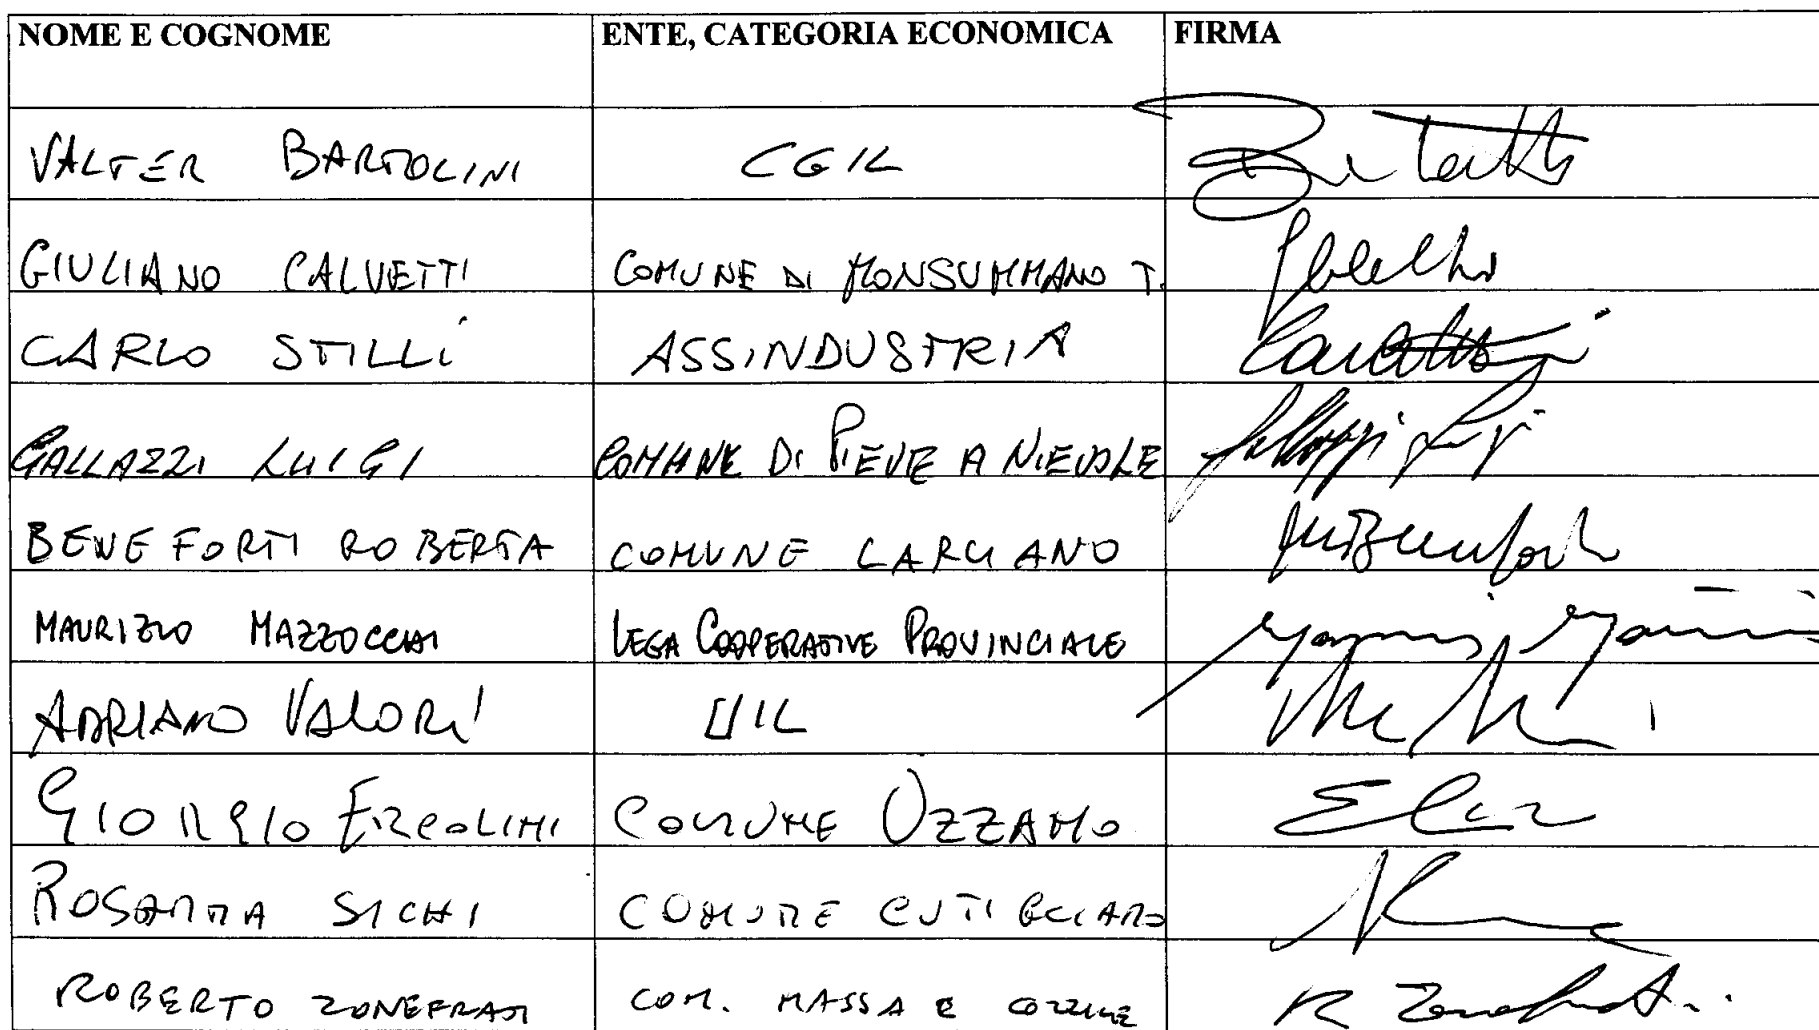 NOME E COGNOME ENTE, CATEGORIA ECONOMICA FIRMA
VALTER BARTOLINI CGIL
GIULIANO CALVETTI COMUNE DI MONSUMMANO T.
CARLO STILLI ASSINDUSTRIA
GALLAZZI LUIGI COMUNE DI PIEVE A NIEVOLE
BENEFORTI ROBERTA COMUNE LARCIANO
MAURIZIO MAZZOCCHI LEGA COOPERATIVE PROVINCIALE
ADRIANO VALORI UIL
GIORGIO ERCOLINI COMUNE UZZANO
ROSANNA SICHI COMUNE CUTIGLIANO
ROBERTO ZONEFRATI COM. MASSA E COZZILE